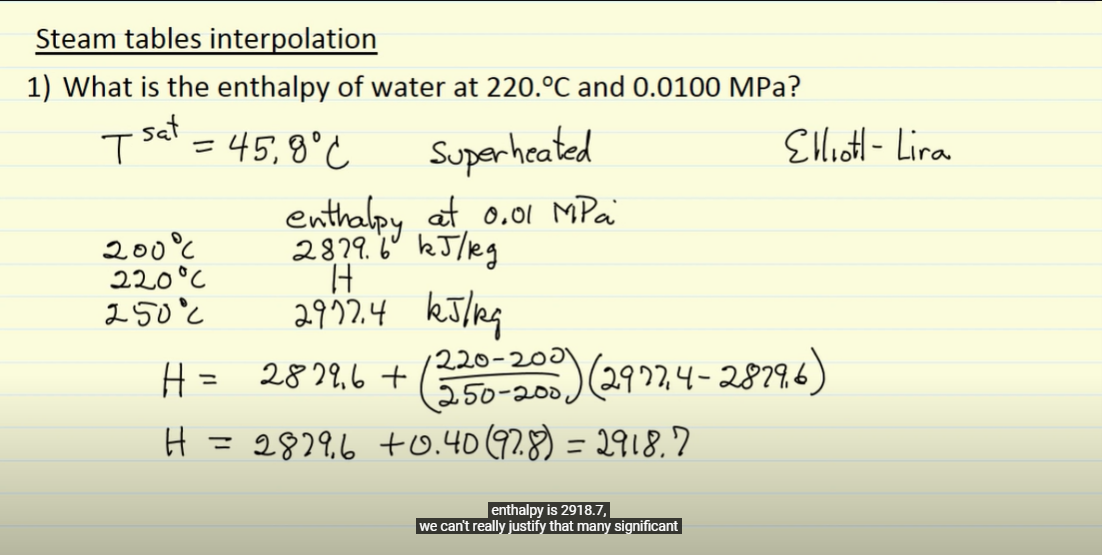 Steam tables interpolation
1) What is the enthalpy of water at 220.°C and 0.0100 MPa?
T sat = 45.8°C Superheated Elliott-Lira
enthalpy at 0.01 MPa
200°C 2879.6 kJ/kg
220°C H
250°C 2977.4 kJ/kg
H = 2879.6 + ((220-200)/(250-200))(2977.4-2879.6)
H = 2879.6 +0.40(97.8) = 2918.7
enthalpy is 2918.7,
we can't really justify that many significant